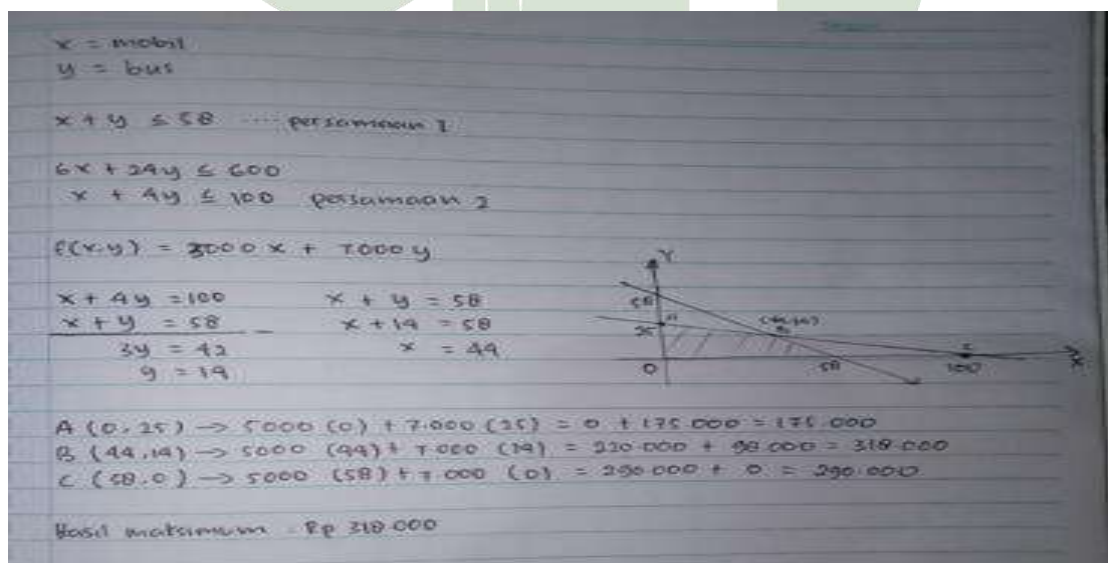 x = mobil
y = bus
x + y ≤ 58 .... persamaan 1
6x + 24y ≤ 600
x + 4y ≤ 100 persamaan 2
f(x,y) = 5000 x + 7.000 y
x + 4y = 100
x + y = 58
3y = 42
y = 14
x + y = 58
x + 14 = 58
x = 44
Y
58
25 A
(44,14)
B
C
0
58
100
X
A (0,25) → 5000 (0) + 7.000 (25) = 0 + 175.000 = 175.000
B (44,14) → 5000 (44) + 7.000 (14) = 220.000 + 98.000 = 318.000
C (58,0) → 5000 (58) + 7.000 (0) = 290.000 + 0 = 290.000
Hasil maksimum = Rp 318.000